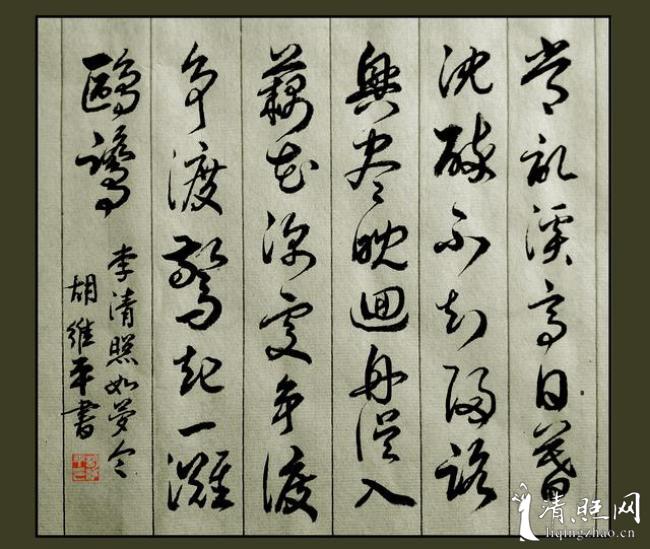 常記溪亭日暮
沈醉不知歸路
興盡晚迴舟誤入
藕花深處爭渡
爭渡驚起一灘
鷗鷺
李清照如夢令
胡維平書
清旺网
liqingzhao.cn